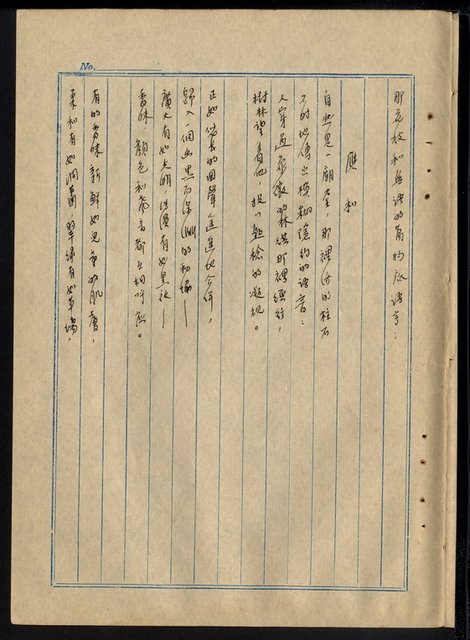 No.
那花枝和無語的萬物底語言：
應和
自然是一廟堂，那裡活的柱石
不時地傳出模糊隱約的語音：
人穿過象徵的林從那裡經行，
樹林望着他，投以熟稔的凝視。
正如悠長的回聲遙遙地合併，
歸入一個幽黑而深淵的和協——
廣大有如光明，浩漫有如黑夜
香味，顏色和聲音都互相呼應。
有的香味新鮮如兒童的肌膚，
柔和有如洞簫，翠綠有如草場，